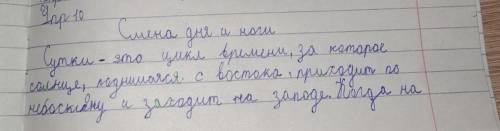 Упр 10
Смена дня и ночи
Сутки - это цикл времени, за которое
солнце, поднимаясь с востока, приходит по
небосклону и заходит на западе. Когда на